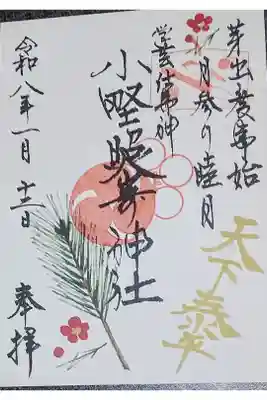 芽出度事始
月参り睦月
学芸技術神
小野照崎神社
天下泰平
令和八年一月十二日
奉拝